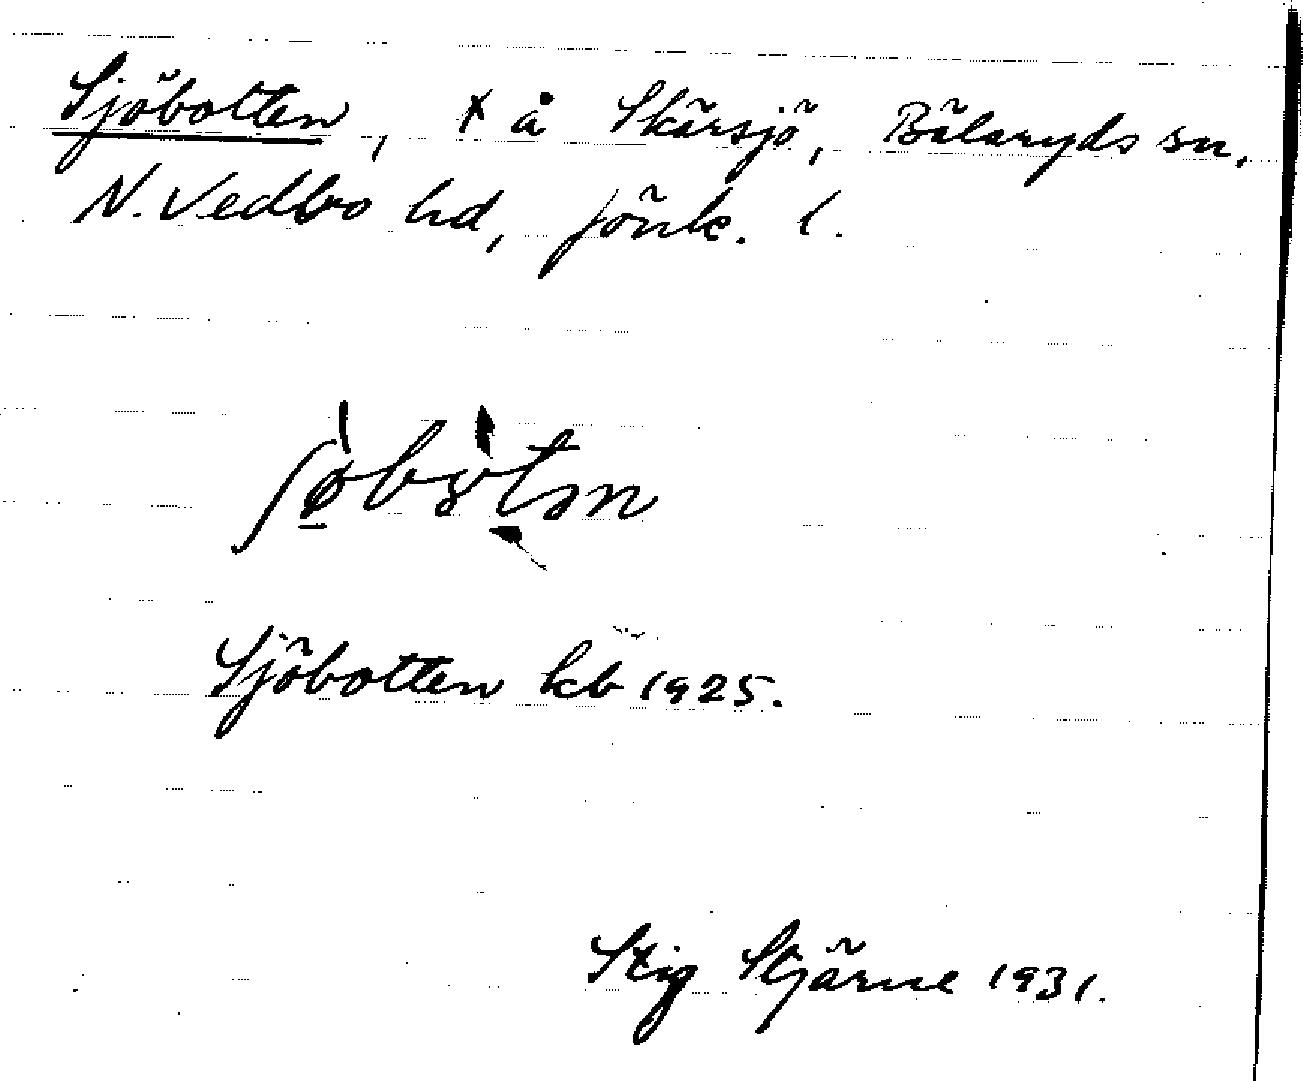 Sjöbotten, x å Skärsjö, Bälaryds sn,
N. Vedbo hd, Jönk. l.
Sjöbotten kb 1925.
Stig Stjärne 1931.